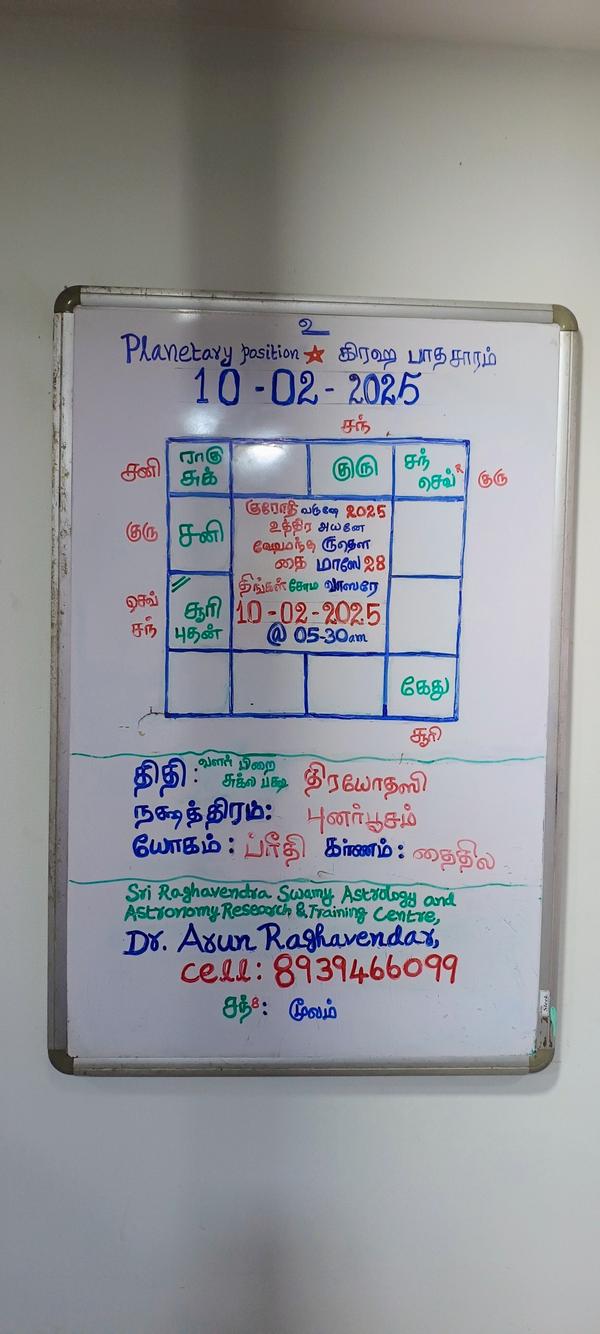 உ
Planetary position ★ கிரஹ பாதசாரம்
10-02-2025
சந்
சனி
ராகு
சுக்
குரு
சந்
செவ்
R
குரு
குரு
சனி
குரோதி வருஷே 2025
உத்திர அயனே
ஹேமந்த ருதௌ
தை மாஸே 28
திங்கள் சோம வாஸரே
10-02-2025
@ 05-30am
செவ்
சந்
சூரி
புதன்
கேது
சூரி
திதி: வளர் பிறை சுக்ல பக்ஷ திரயோதஸி
நக்ஷத்திரம்: புனர்பூசம்
யோகம்: ப்ரீதி கர்ணம்: தைதில
Sri Raghavendra Swamy Astrology and
Astronomy Research & Training Centre,
Dr. Arun Raghavendar,
cell: 8939466099
சந்8: மூலம்